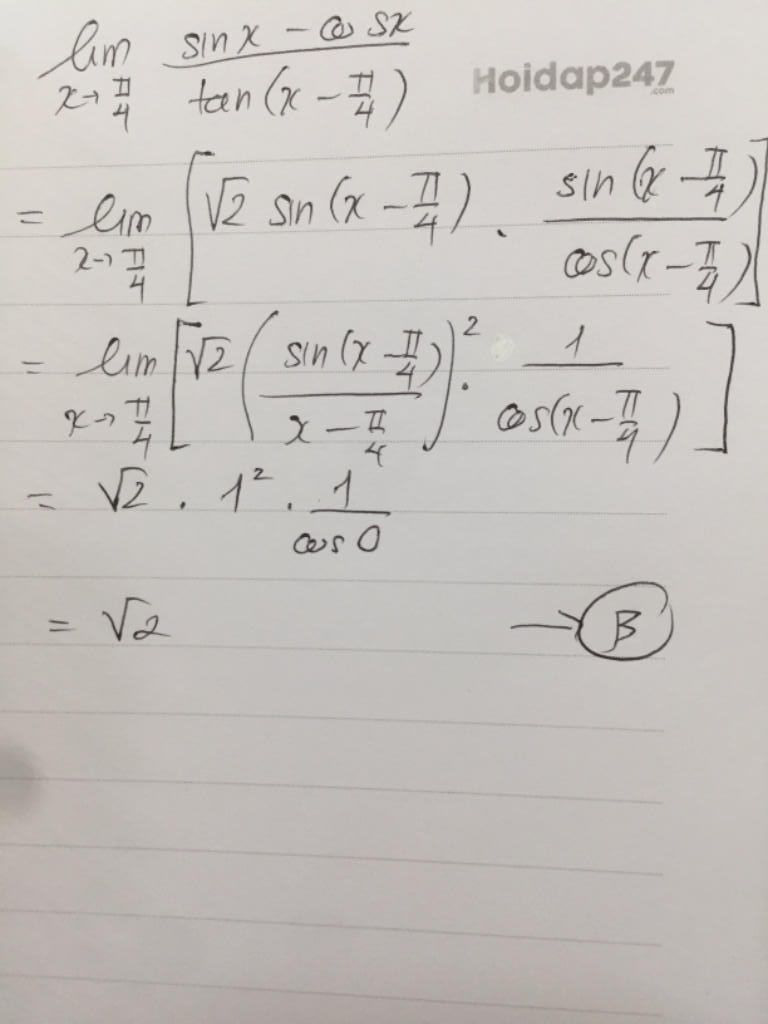 lim x→π/4 (sin x − cos x)/(tan(x − π/4))
Hoidap247.com
= lim x→π/4 [√2 sin(x − π/4) . sin(x − π/4)/cos(x − π/4)]
= lim x→π/4 [√2 (sin(x − π/4)/(x − π/4))² . 1/cos(x − π/4)]
= √2 . 1² . 1/cos 0
= √2 → B